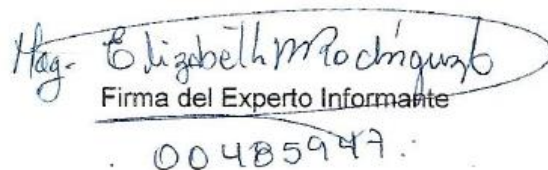 Mag. Elizabeth M Rodríguez
Firma del Experto Informante
00485947.